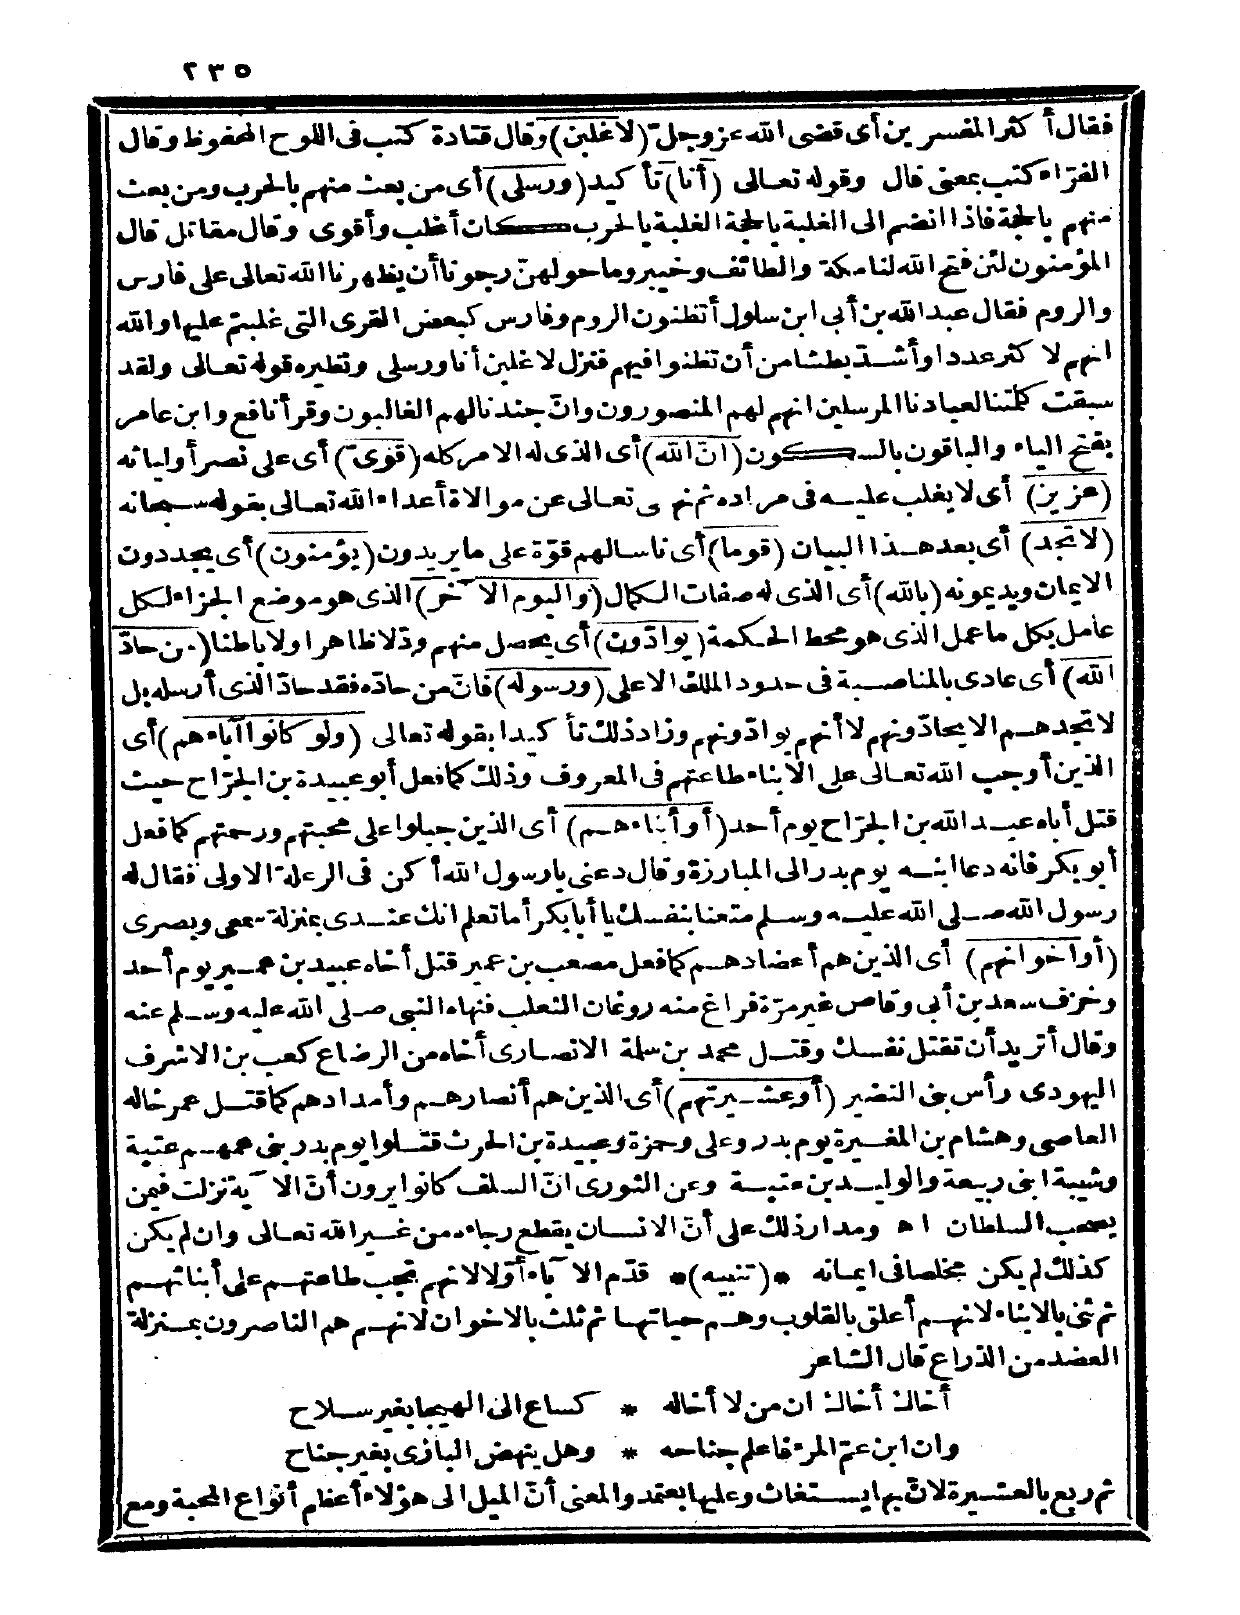 ٢٣٥
فقال أكثر المفسرين أى قضى الله عز وجل (لاغلبن) وقال قتادة كتب فى اللوح المحفوظ وقال
الفرّاء كتب بمعنى قال وقوله تعالى (أنا) تأكيد (ورسلى) أى من بعث منهم بالحرب ومن بعث
منهم بالحجة فاذا انضم الى الغلبة بالحجة الغلبة بالحرب كان أغلب وأقوى وقال مقاتل قال
المؤمنون لئن فتح الله لنا مكة والطائف وخيبر وما حولهنّ رجونا أن يظهرنا الله تعالى على فارس
والروم فقال عبد الله بن أبى ابن سلول أتظنون الروم وفارس كبعض القرى التى غلبتم عليها والله
انهم لا كثر عددا وأشدّ بطشا من أن تظنوا فيهم فنزل لاغلبن أنا ورسلى ونظيره قوله تعالى ولقد
سبقت كلمتنا لعبادنا المرسلين انهم لهم المنصورون وانّ جندنا لهم الغالبون وقرأ نافع وابن عامر
بفتح الياء والباقون بالسكون (انّ الله) أى الذى له الامر كله (قوىّ) أى على نصر أوليائه
(عزيز) أى لا يغلب عليه فى مراده ثم نهى تعالى عن موالاة أعداء الله تعالى بقوله سبحانه
(لا تجد) أى بعد هذا البيان (قوما) أى ناسا لهم قوّة على ما يريدون (يؤمنون) أى يجددون
الايمان ويديمونه (بالله) أى الذى له صفات الكمال (واليوم الآخر) الذى هو موضع الجزاء لكل
عامل بكل ما عمل الذى هو محط الحكمة (يوادّون) أى يحصل منهم ودّ لا ظاهرا ولا باطنا (من حادّ
الله) أى عادى بالمناصبة فى حدود الملك الاعلى (ورسوله) فانّ من حادّه فقد حادّ الذى أرسله بل
لا تجدهم الا يحادّونهم لا أنهم يوادّونهم وزاد ذلك تأكيدا بقوله تعالى (ولو كانوا آباءهم) أى
الذين أوجب الله تعالى على الابناء طاعتهم فى المعروف وذلك كما فعل أبو عبيدة بن الجرّاح حيث
قتل أباه عبد الله بن الجرّاح يوم أحد (أو أبناءهم) أى الذين جبلوا على محبتهم ورحمتهم كما فعل
أبو بكر فانه دعا ابنه يوم بدر الى المبارزة وقال دعنى يا رسول الله أكن فى الرعلة الاولى فقال له
رسول الله صلى الله عليه وسلم متعنا بنفسك يا أبا بكر أما تعلم انك عندى بمنزلة سمعى وبصرى
(أو اخوانهم) أى الذين هم أعضادهم كما فعل مصعب بن عمير قتل أخاه عبيد بن عمير يوم أحد
وخرق سعد بن أبى وقاص غير مرّة فراغ منه روغان الثعلب فنهاه النبى صلى الله عليه وسلم عنه
وقال أتريد أن تقتل نفسك وقتل محمد بن سلمة الانصارى أخاه من الرضاع كعب بن الاشرف
اليهودى رأس بنى النضير (أو عشيرتهم) أى الذين هم أنصارهم وأمدادهم كما قتل عمر خاله
العاصى وهشام بن المغيرة يوم بدر وعلى وحمزة وعبيدة بن الحرث قتلوا يوم بدر بنى عمهم عتبة
وشيبة ابنى ربيعة والوليد بن عتبة وعن الثورى انّ السلف كانوا يرون أنّ الآية نزلت فيمن
يصحب السلطان اه ومدار ذلك على أنّ الانسان يقطع رجاءه من غير الله تعالى وان لم يكن
كذلك لم يكن مخلصا فى ايمانه * (تنبيه) * قدّم الآباء أوّلا لانهم تجب طاعتهم على أبنائهم
ثم ثنى بالابناء لانهم أعلق بالقلوب وهم حياتها ثم ثلث بالاخوان لانهم هم الناصرون بمنزلة
العضد من الذراع قال الشاعر
أخاك أخاك ان من لا أخاله * كساع الى الهيجا بغير سلاح
وان ابن عمّ المرء فاعلم جناحه * وهل ينهض البازى بغير جناح
ثم ربع بالعشيرة لانّ بها يستغاث وعليها يعتمد والمعنى أنّ الميل الى هؤلاء أعظم أنواع المحبة ومع